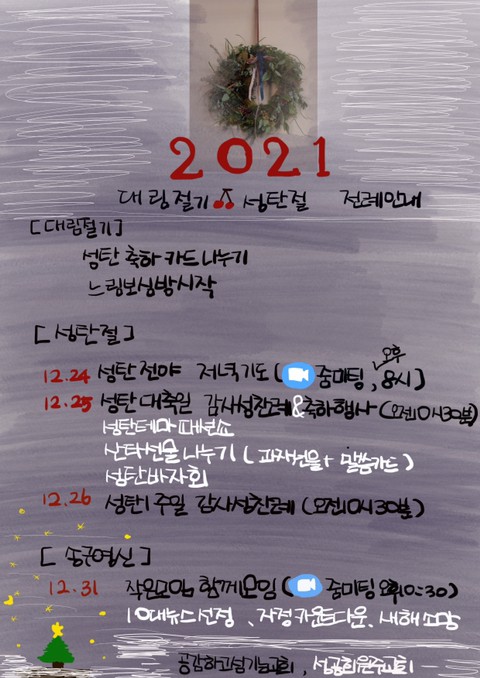 2021
대림절기 성탄절 전례안내
[대림절기]
성탄 축하 카드 나누기
느림보심방시작
[성탄절]
오후
12.24 성탄전야 저녁기도 ( 줌미팅, 8시)
12.25 성탄대축일 감사성찬례&축하행사 (오전10시30분)
성탄테마
산타선물 나누기 (과자선물+ 말씀카드)
성탄바자회
12.26 성탄1주일 감사성찬례 (오전10시30분)
[송구영신]
12.31 작은모임 함께모임 ( 줌미팅 오후10:30)
10대뉴스선정, 자정카운트다운, 새해소망
공감하고섬기는교회, 성공회원주교회